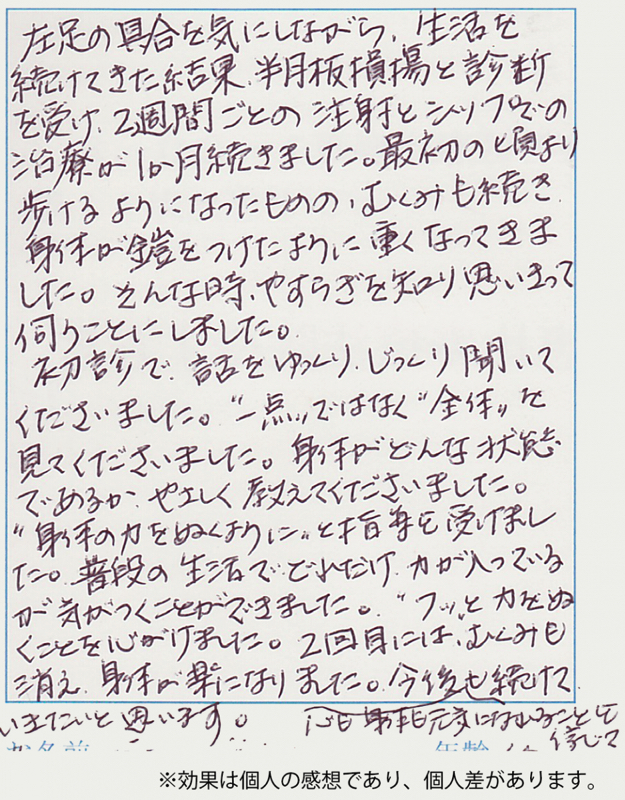 左足の具合を気にしながら、生活を
続けてきた結果、半月板損傷と診断
を受け、2週間ごとの注射とシップでの
治療が1か月続きました。最初のと頃より
歩けるようになったものの、むくみも続き
身体が鎧をつけたように重くなってきま
した。そんな時、やすらぎを知り思いきって
伺うことにしました。
初診で、話をゆっくり、じっくり聞いて
くださいました。“一点”ではなく“全体”を
見てくださいました。身体がどんな状態
であるか、やさしく教えてくださいました。
“身体の力をぬくように”と指導を受けまし
た。普段の生活でどれだけ、力が入っている
が気がつくことができました。“フッ”と力をぬ
くことを心がけました。2回目には、むくみも
消え、身体が楽になりました。今後も続けて
いきたいと思います。 心も身体も元気になれることを
信じて
※効果は個人の感想であり、個人差があります。